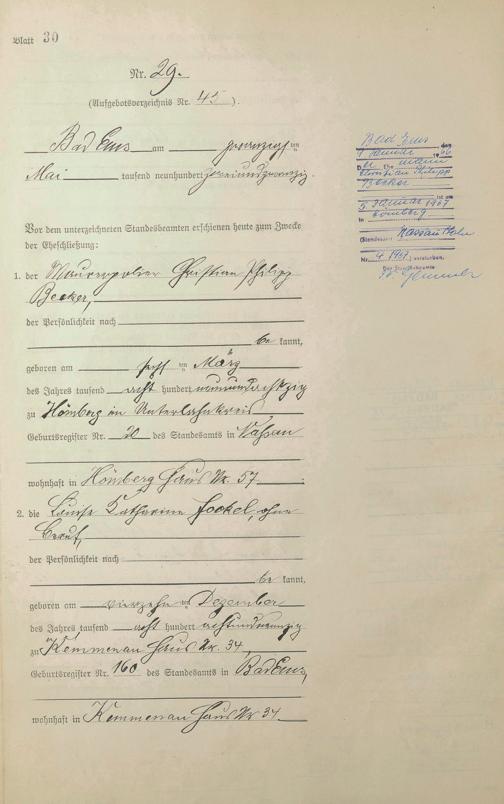 Blatt 30
Nr. 29.
(Aufgebotsverzeichnis Nr. 45).
Bad Ems am zwanzigsten
Mai tausend neunhundert zweiundzwanzig.
Vor dem unterzeichneten Standesbeamten erschienen heute zum Zwecke
der Eheschließung:
1. der Maurerpolier Christian Philipp
Becker,
der Persönlichkeit nach
be kannt,
geboren am sechsten März
des Jahres tausend acht hundert neunundachtzig
zu Hömberg im Unterlahnkreis
Geburtsregister Nr. 20 des Standesamts in Nassau
wohnhaft in Hömberg Haus Nr. 57
2. die Louise Katharine ohne
Beruf,
der Persönlichkeit nach
be kannt,
geboren am vierzehnten Dezember
des Jahres tausend acht hundert achtundneunzig
zu Kemmenau Haus Nr. 34,
Geburtsregister Nr. 160 des Standesamts in Bad Ems,
wohnhaft in Kemmenau Haus Nr. 34
Bad Ems den
Januar 19
Der Ehemann
Christian Philipp
Becker
ist am
5. Januar 1967
in Hömberg
(Standesamt Nassau
Nr. 4/1967) verstorben.
Der Standesbeamte